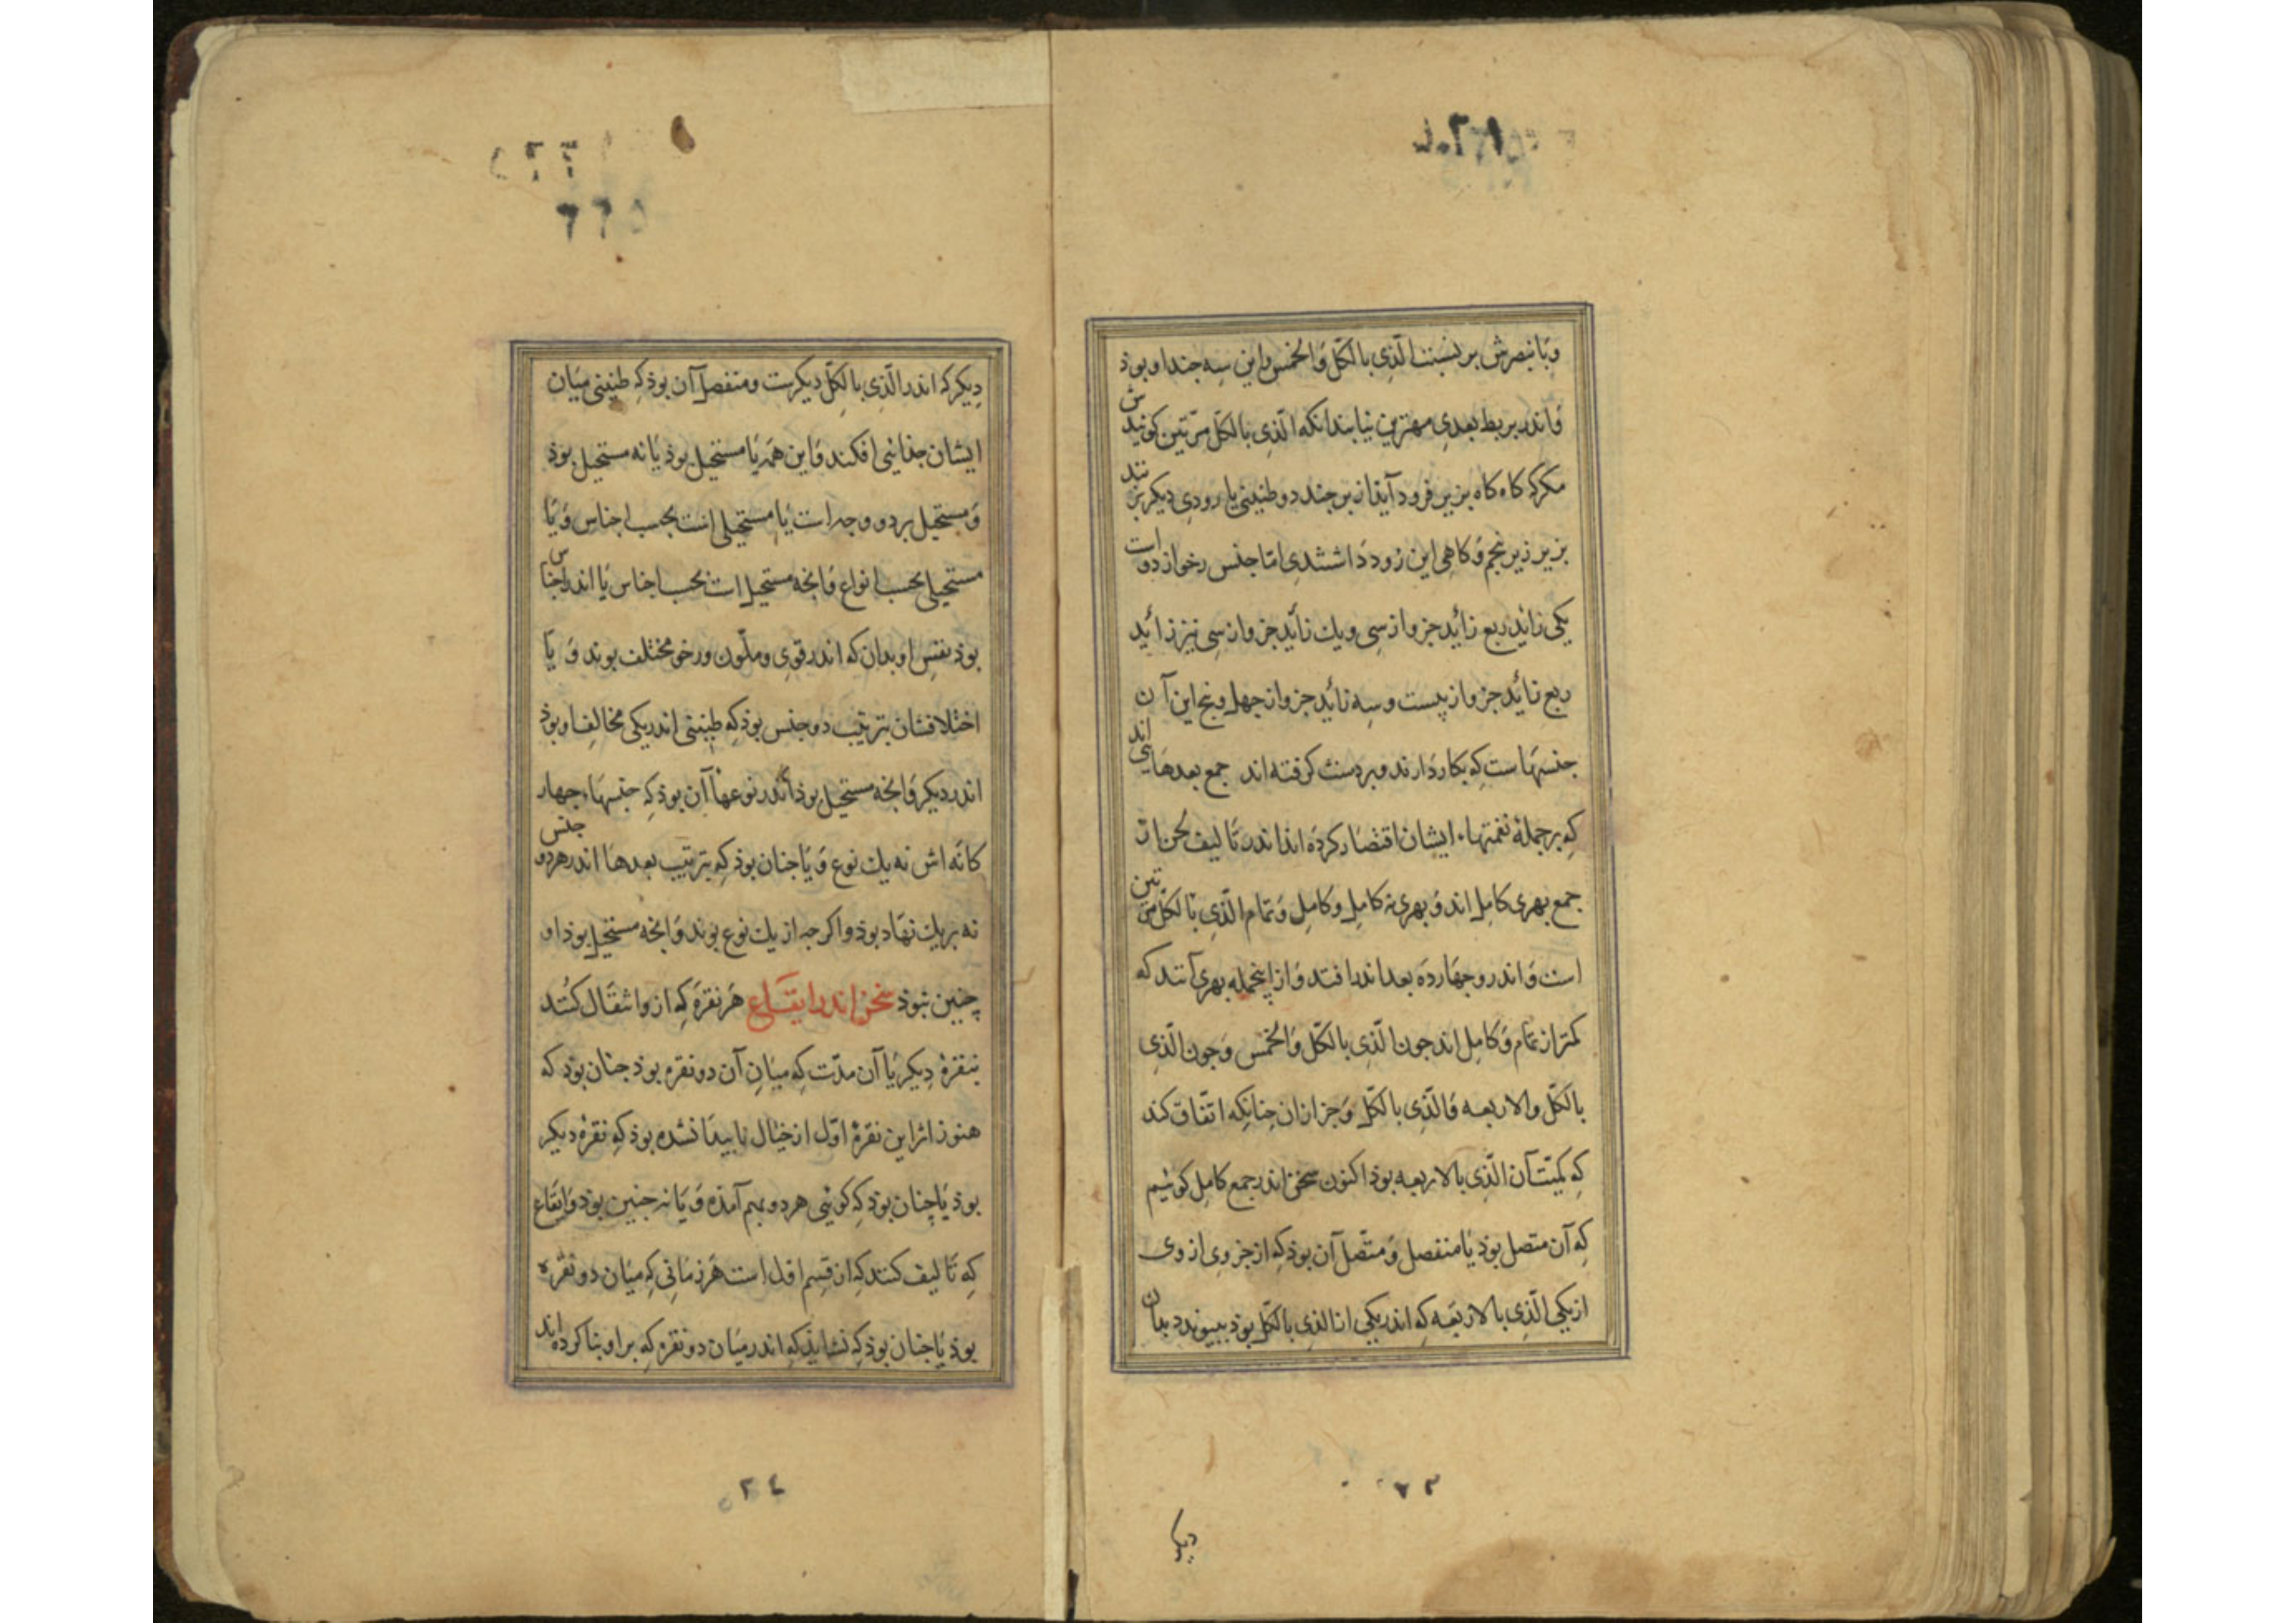 وبا بنصرش بر نسبت الّذی بالکلّ والخمس و این سه جندا و بوذ
و اندر بربط بعدی مهترین نیابند انکه الّذی بالکلّ مرّتین کونیدش
مکر که کاه کاه بزیر فرود آیند از بن جند دو طنینی یا رودی دیکر بزنند
بزیر زیر پنجم و کاهی این رود داشتندی امّا جنس رخو از دو است
یکی زائید ربع زائید جزو از سی و یك زائید جزو از سی نیز زائید
ربع زائید جزو از بیست و سه زائید جزو از جهل و پنج این آن
جنسهاست که بکار دارند و بر دست کرفته اند جمع بعدهایی اند
که بر جملهٔ نغمتهاء ایشان اقتصار کرده اند اندر تالیف لحن از
جمع بهری کامل اند و بهری نه کامل و کامل و تمام الّذی بالکلّ مرّتین
است و اندر و جهارده بعد اندر افتد و از اینجمله بهری آنند که
کمتر از تمام و کامل اند جون الّذی بالکلّ والخمس و جون الّذی
بالکلّ والاربعه و الّذی بالکلّ و جز از ان جنانکه اتّفاق کند
که کمیّت آن الّذی بالاربعه بوذ اکنون سخن اندر جمع کامل کوئیم
که آن متصل بوذ یا منفصل و متّصل آن بوذ که از جزوی از وی
از یکی الّذی بالاربعه که اندر یکی از الذی بالکلّ بوذ بپیوندد بدان
دیکر
۲۳
٦٦٥
دیکر که اندر الّذی بالکلّ دیکرست و منفصل آن بوذ که طنینی میان
ایشان جذائی افکند و این همه یا مستحیل بوذ یا نه مستحیل بوذ
و مستحیل بر دو وجه است یا مستحیلی است بحسب اجناس و یا
مستحیلی بحسب انواع و انجه مستحیل است بحسب اجناس یا اندر اجناس
بوذ بنفس او بدان که اندر قوی و ملّون و رخو مختلف بوند و یا
اختلافشان بترتیب دو جنس بوذ که طنینی اندر یکی مخالف او بوذ
اندر دیکر و انجه مستحیل بوذ اندر نوعها آن بوذ که جنسهاء جهار
کانه اش نه یك نوع و یا جنان بوذ که بترتیب بعدها اندر هر دو جنس
نه بر یك نهاد بوذ و اکر جه از یك نوع بوند و انجه مستحیل بوذ او
چنین نبوذ سخن اندر ایقاع هر نقره که ازو انتقال کنند
بنقرهٔ دیکر یا آن مدّت که میان آن دو نقره بوذ جنان بوذ که
هنوز اثر این نقرهٔ اوّل از خیال ناپیدا نشده بوذ که نقرهٔ دیکر
بوذ یا چنان بوذ که کوئی هر دو بهم آمذه و یا نه جنین بوذ و ایقاع
که تالیف کنند که از قسم اوّل است هر زمانی که میان دو نقره
بوذ یا جنان بوذ که نشاید که اندر میان دو نقره که بر او بنا کرده اند
۲٤